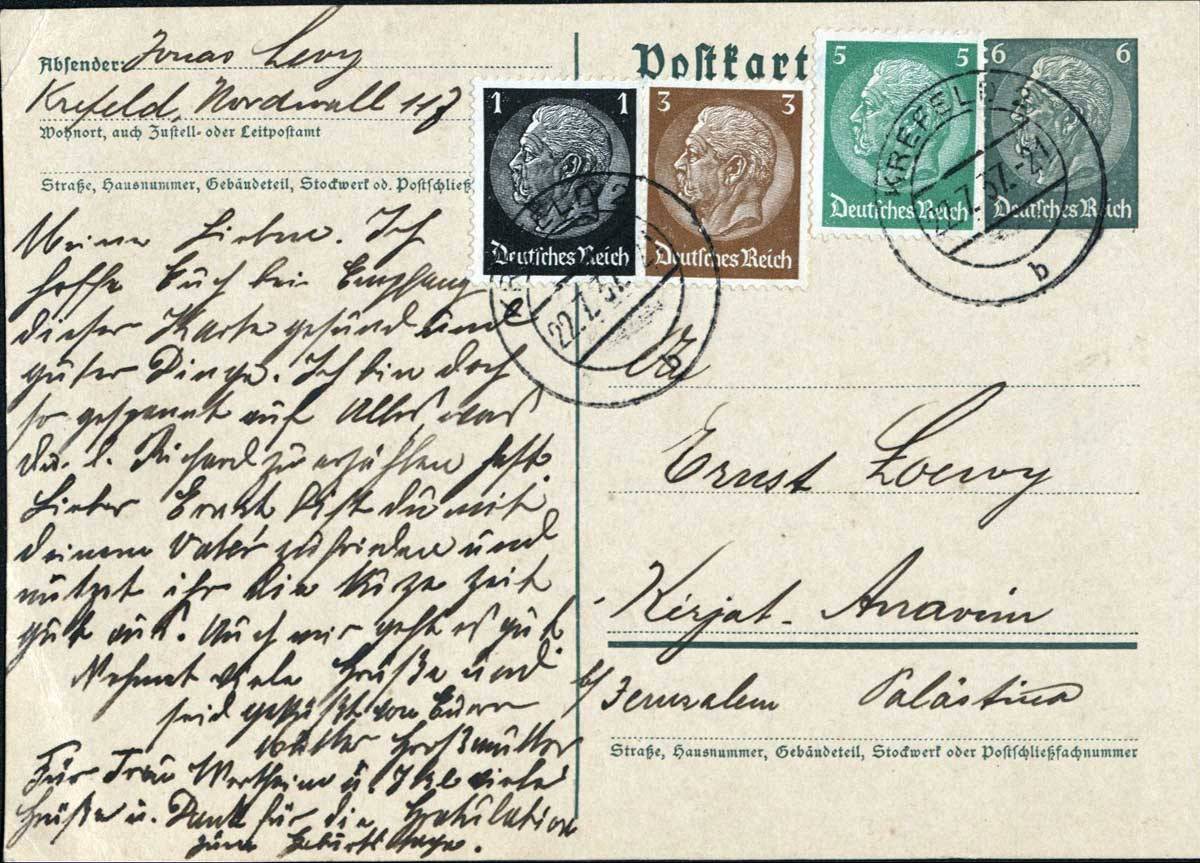 Absender: Jonas Levy
Krefeld, Nordwall 117
Wohnort, auch Zustell- oder Leitpostamt
Straße, Hausnummer, Gebäudeteil, Stockwerk od. Postschließ
Postkart
1 1
Deutsches Reich
3 3
Deutsches Reich
5 5
Deutsches Reich
6 6
Deutsches Reich
KREFELD 2
22.7.37.-21
b
22.7.37
e
Meine Lieben. Ich
hoffe Euch bei Empfang
dieser Karte gesund und
guter Dinge. Ich bin doch
so gespannt auf Alles was
du l. Richard zu erzählen hast.
Lieber Ernst bist du mit
deinem Vater zufrieden und
nützet ihr die kurze Zeit
gut aus. Auch mir geht es gut.
Nehmet viele Grüße und
seid geküßt von Eurer
Mutter Großmutter
Für Frau Wertheim u. Ilse viele
Grüße u. Dank für die Gratulation
zum Geburtstage.
Ernst Loewy
Kirjat-Anavim
b/ Jeruzalem Palästina
Straße, Hausnummer, Gebäudeteil, Stockwerk oder Postschließfachnummer